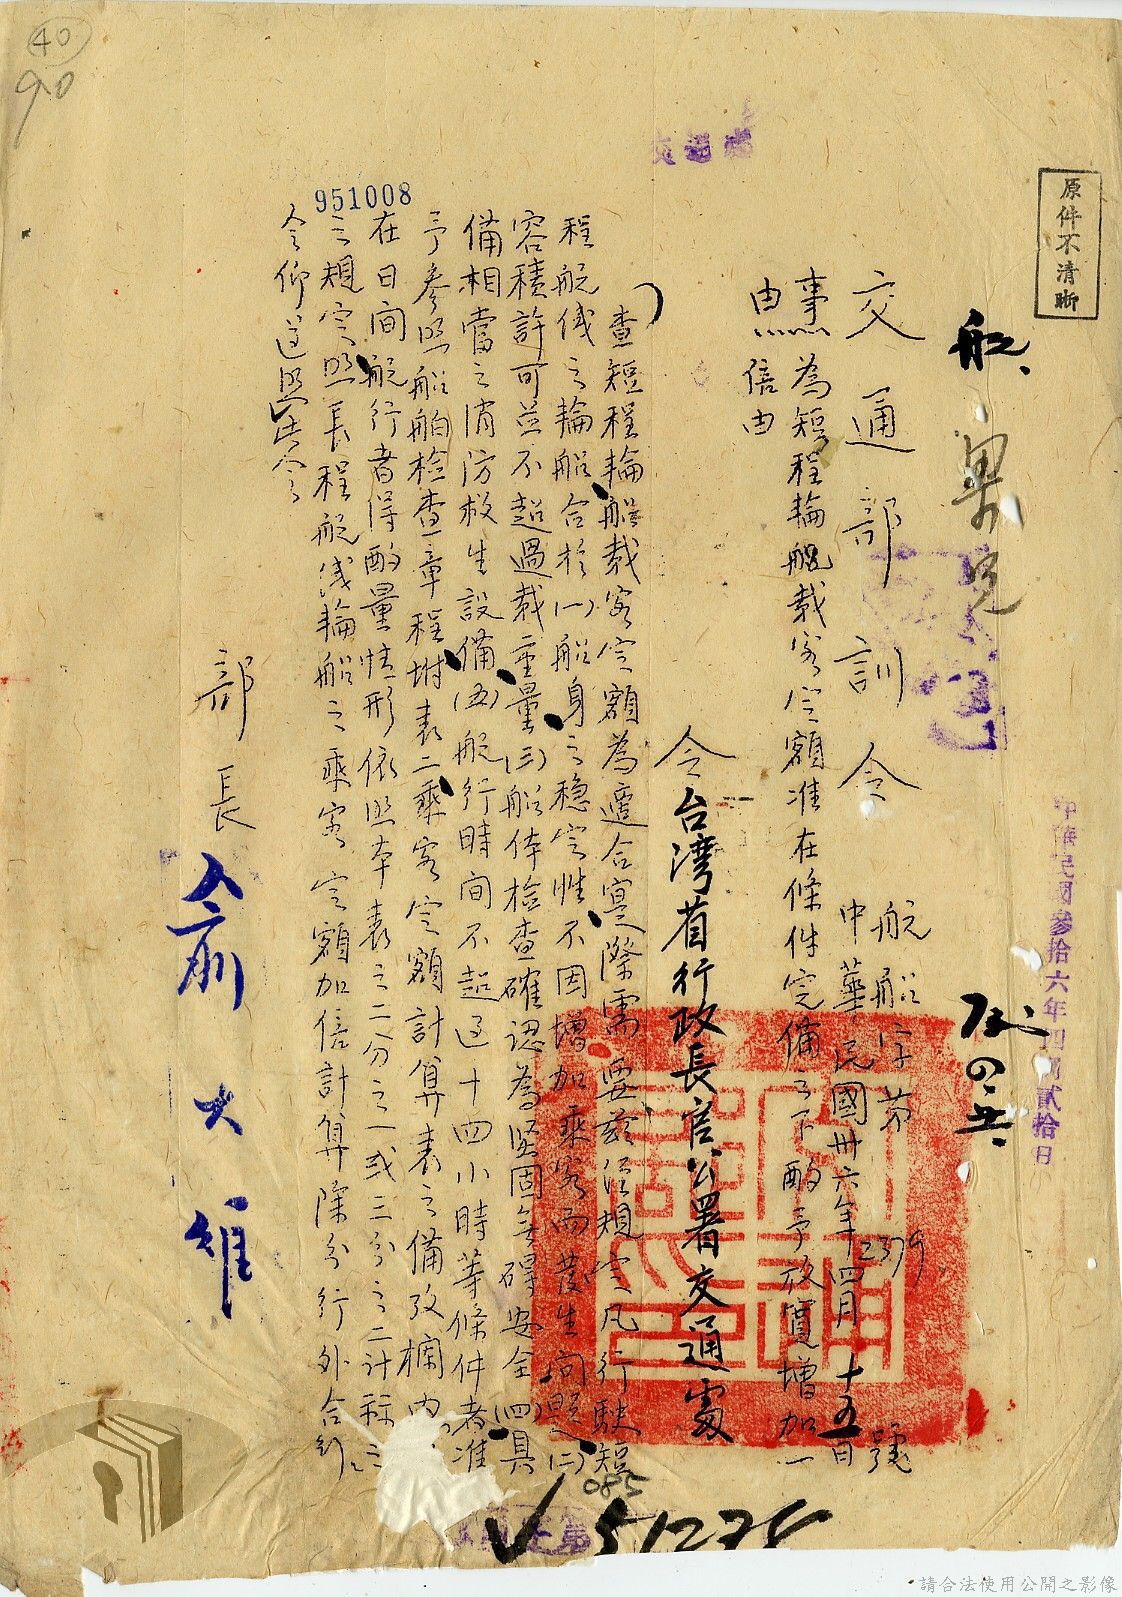 原件不清晰
交通部訓令
航船字第2379號
中華民國卅六年四月十五日
中華民國參拾六年四月貳拾日
事由
為短程輪船載客定額准在條件完備之下酌予放寬增加一
倍由
令台灣省行政長官公署交通處
查短程輪船載客定額為適合實際需要茲經規定凡行駛短
程航線之輪船合於(一)船身之穩定性不因增加乘客而發生問題(二)
容積許可並不超過載重量(三)船体檢查確認為堅固無碍安全(四)具
備相當之消防救生設備(五)航行時间不超过十四小時等條件者准
予參照船舶檢查章程附表二乘客定額計算表之備攷欄內
在日间航行者得酌量情形依照本表之二分之一或三分之二計秝之
規定照長程航线輪船之乘客定額加倍計算除分行外合行
令仰遵照此令
部長俞大維
951008
40
90
085
51278
請合法使用公開之影像